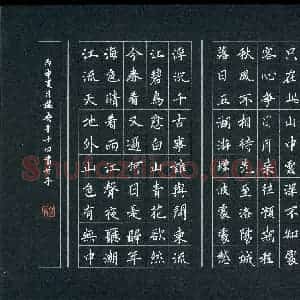 只在此山中雲深不知處
客心爭日月來往預期程
秋風不相待先至洛陽城
落日五湖遊煙波處處愁
浮沉千古事誰與問東流
江碧鳥逾白山青花欲然
今春看又過何日是歸年
海色晴看雨江聲夜聽潮
江流天地外山色有無中
丙申夏月